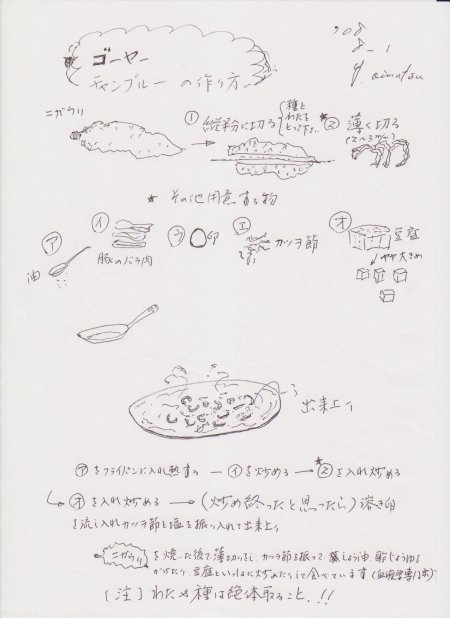 '08
8-1
y. oimatsu
ゴーヤー
チャンプルーの作り方
ニガウリ
① 縦粉に切る
種と
わたを
とって下さい
② 薄く切る
★ その他用意する物
ア
油
イ
豚のバラ肉
ウ 卵
エ カツヲ節
オ 豆腐
やや大きめ
出来上り
アをフライパンに入れ熱する ― イを炒める → ②を入れ炒める
オを入れ炒める → (炒め終ったと思ったら) 溶き卵
を流し入れカツヲ節と塩を振り入れて出来上り
ニガウリ を焼いた後で薄切りをし、カツヲ節を振って
豆腐といっしょに炒めたりして食べています
[注] わたや種は絶体取ること.!!